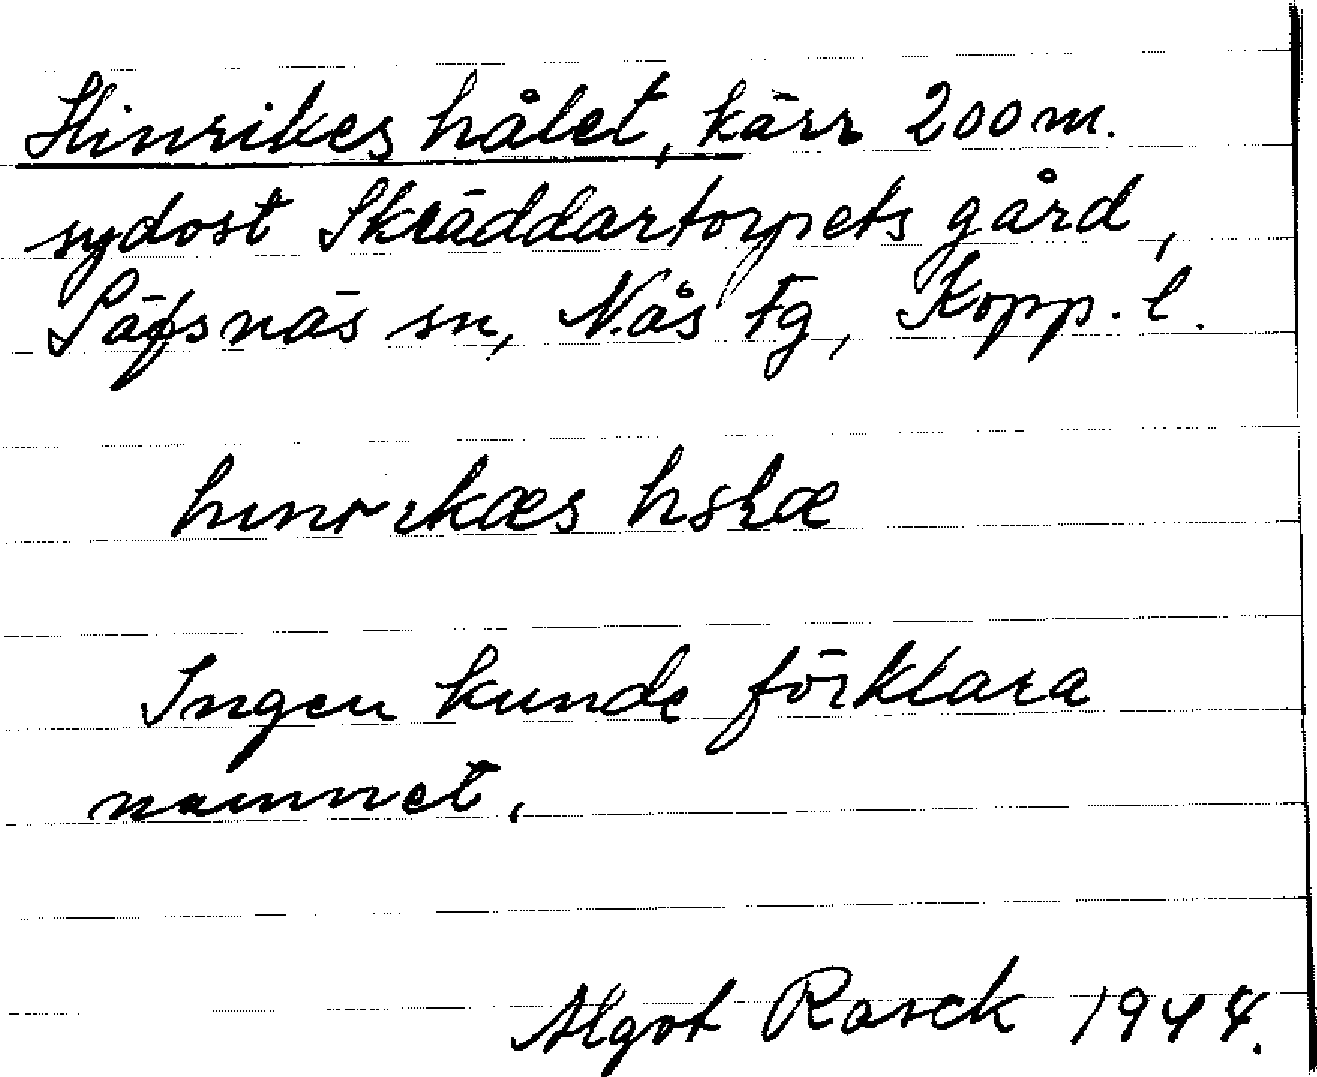 Hinrikes hålet, kärr 200 m.
sydost Skräddartorpets gård,
Säfsnäs sn, Nås Fg, Kopp. l.
hinrikæs
Ingen kunde förklara
namnet.
Algot Rasck 1944.